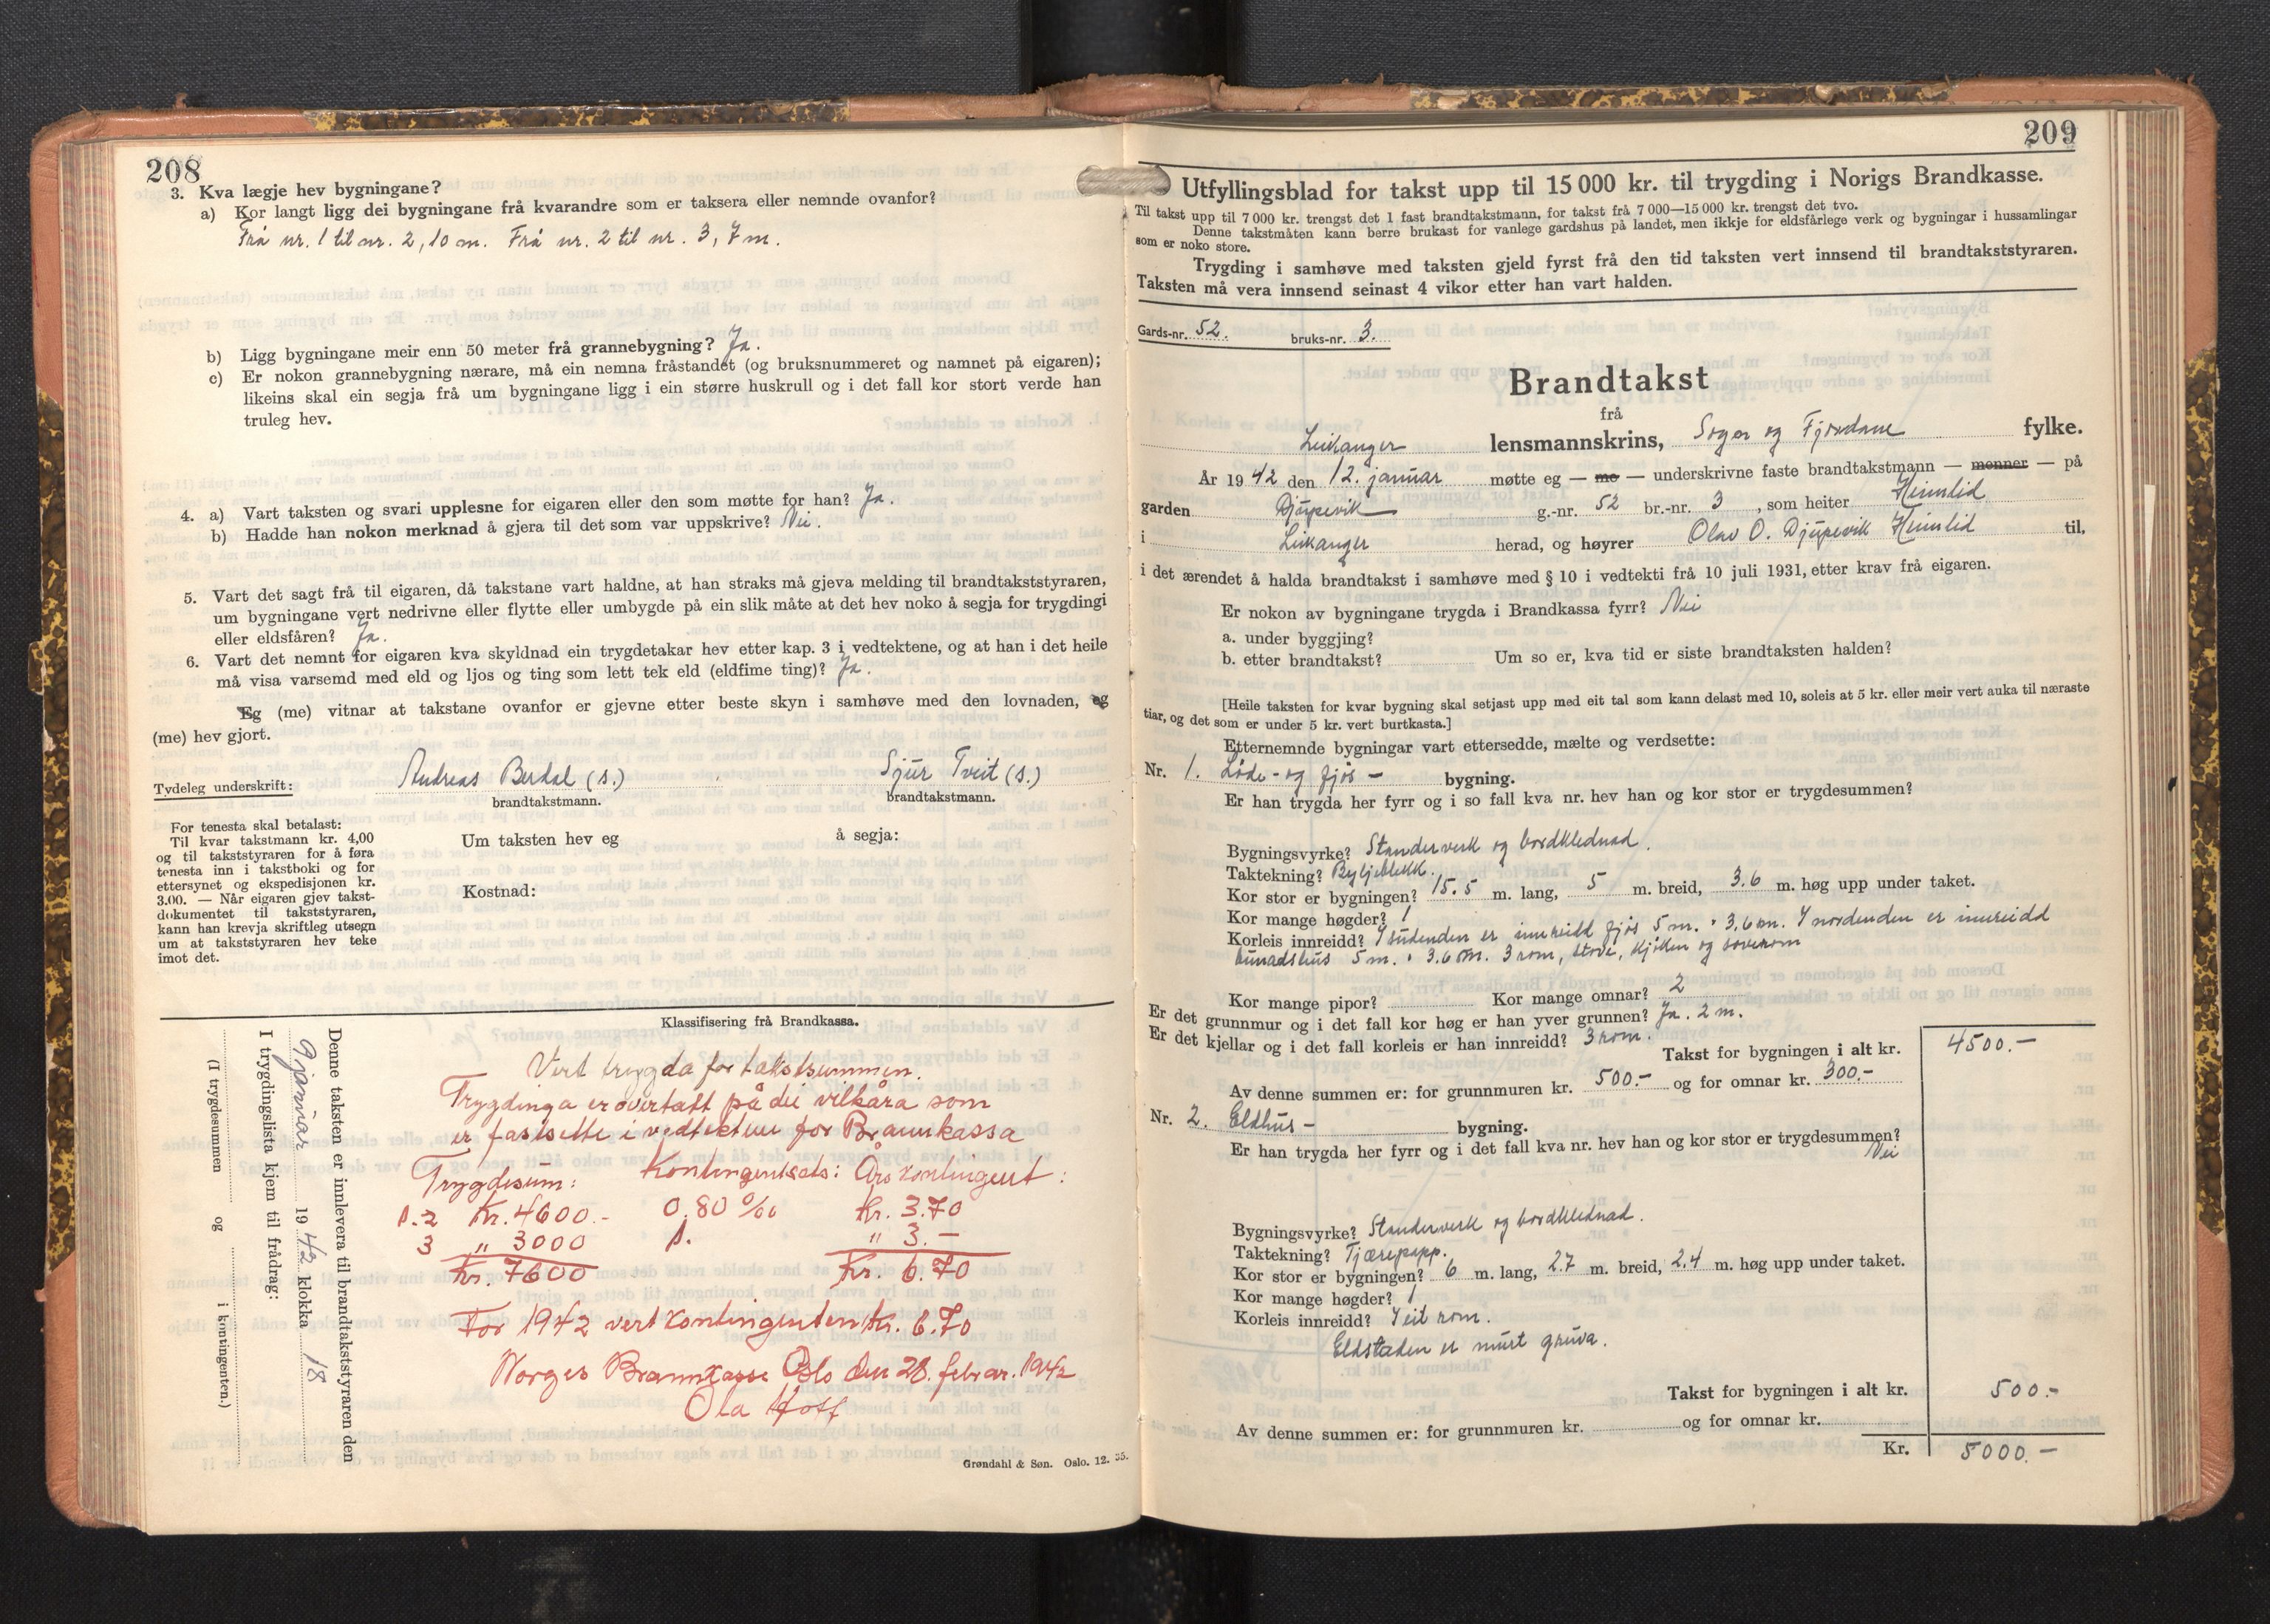 208
3. Kva lægje hev bygningane?
a) Kor langt ligg dei bygningane frå kvarandre som er taksera eller nemnde ovanfor?
Frå nr. 1 til nr. 2, 10 m. Frå nr. 2 til nr. 3, 7 m.
b) Ligg bygningane meir enn 50 meter frå grannebygning? Ja.
c) Er nokon grannebygning nærare, må ein nemna fråstandet (og bruksnummeret og namnet på eigaren);
likeins skal ein segja frå um bygningane ligg i ein større huskrull og i det fall kor stort verde han
truleg hev.
4. a) Vart taksten og svari upplesne for eigaren eller den som møtte for han? Ja.
b) Hadde han nokon merknad å gjera til det som var uppskrive? Nei.
5. Vart det sagt frå til eigaren, då takstane vart haldne, at han straks må gjeva melding til brandtakststyraren,
um bygningane vert nedrivne eller flytte eller umbygde på ein slik måte at det hev noko å segja for trygdingi
eller eldsfåren? Ja.
6. Vart det nemnt for eigaren kva skyldnad ein trygdetakar hev etter kap. 3 i vedtektene, og at han i det heile
må visa varsemd med eld og ljos og ting som lett tek eld (eldfime ting)? Ja.
Eg (me) vitnar at takstane ovanfor er gjevne etter beste skyn i samhøve med den lovnaden, eg
(me) hev gjort.
Tydeleg underskrift: Andreas Berdal (s.) Sjur Tveit (s.)
brandtakstmann. brandtakstmann.
For tenesta skal betalast:
Til kvar takstmann kr. 4,00
og til takststyraren for å føra
tenesta inn i takstboki og for
ettersynet og ekspedisjonen kr.
3.00. — Når eigaren gjev takst-
dokumentet til takststyraren,
kann han krevja skriftleg utsegn
um at takststyraren hev teke
imot det.
Um taksten hev eg å segja:
Kostnad:
Denne taksten er innlevera til brandtakststyraren den
9 januar 1942 klokka 18
I trygdingslista kjem til frådrag:
(I trygdesummen og i kontingenten.)
Klassifisering frå Brandkassa.
Vert trygda for takstsummen.
Trygdinga er overtatt på dei vilkåra som
er fastsette i vedtektene for Brannkassa
Trygdesum: Kontingentsats: Års kontingent:
1.2 Kr. 4600.- 0.80 ‰ Kr. 3.70
3 " 3000 1. " 3.—
Kr. 7600 Kr. 6.70
For 1942 vert kontingenten kr. 6.70
Norges Brannkasse Oslo den 28. februar. 1942
Ola Hoff
Grøndahl & Søn. Oslo. 12. 35.
209
Utfyllingsblad for takst upp til 15 000 kr. til trygding i Norigs Brandkasse.
Til takst upp til 7 000 kr. trengst det 1 fast brandtakstmann, for takst frå 7 000—15 000 kr. trengst det tvo.
Denne takstmåten kann berre brukast for vanlege gardshus på landet, men ikkje for eldsfårlege verk og bygningar i hussamlingar
som er noko store.
Trygding i samhøve med taksten gjeld fyrst frå den tid taksten vert innsend til brandtakststyraren.
Taksten må vera innsend seinast 4 vikor etter han vart halden.
Gards-nr. 52. bruks-nr. 3.
Brandtakst
frå
Leikanger lensmannskrins, Sogn og Fjordane fylke.
År 1942 den 12. januar møtte eg — me — underskrivne faste brandtakstmann — menner — på
garden Djupevik g.-nr. 52 br.-nr. 3, som heiter Heimlid
i Leikanger herad, og høyrer Olav O. Djupevik Heimlid til,
i det ærendet å halda brandtakst i samhøve med § 10 i vedtekti frå 10 juli 1931, etter krav frå eigaren.
Er nokon av bygningane trygda i Brandkassa fyrr? Nei
a. under byggjing?
b. etter brandtakst? Um so er, kva tid er siste brandtaksten halden?
[Heile taksten for kvar bygning skal setjast upp med eit tal som kann delast med 10, soleis at 5 kr. eller meir vert auka til næraste
tiar, og det som er under 5 kr. vert burtkasta.]
Etternemnde bygningar vart ettersedde, mælte og verdsette:
Nr. 1. Løde- og fjøs- bygning.
Er han trygda her fyrr og i so fall kva nr. hev han og kor stor er trygdesummen?
Bygningsvyrke? Standerverk og bordklednad.
Taktekning? Bylgjeblekk.
Kor stor er bygningen? 15.5 m. lang, 5 m. breid, 3.6 m. høg upp under taket.
Kor mange høgder? 1
Korleis innreidd? I sudenden er innreidd fjøs 5 m. · 3.6 m. I nordenden er innreidd
bunadshus 5 m. · 3.6 m. 3 rom, stove, kjøken og soverom
Kor mange pipor? Kor mange omnar? 2
Er det grunnmur og i det fall kor høg er han yver grunnen? Ja. 2 m.
Er det kjellar og i det fall korleis er han innreidd? 3 rom.
Takst for bygningen i alt kr. 4500.—
Av denne summen er: for grunnmuren kr. 500.- og for omnar kr. 300.-
Nr. 2. Eldhus- bygning.
Er han trygda her fyrr og i det fall kva nr. hev han og kor stor er trygdesummen?
Nei
Bygningsvyrke? Standerverk og bordklednad.
Taktekning? Tjærepapp.
Kor stor er bygningen? 6 m. lang, 2.7 m. breid, 2.4 m. høg upp under taket.
Kor mange høgder? 1
Korleis innreidd? I eit rom.
Eldstaden er murt gruva.
Takst for bygningen i alt kr. 500.-
Av denne summen er: for grunnmuren kr. og for omnar kr.
Kr. 5000.—